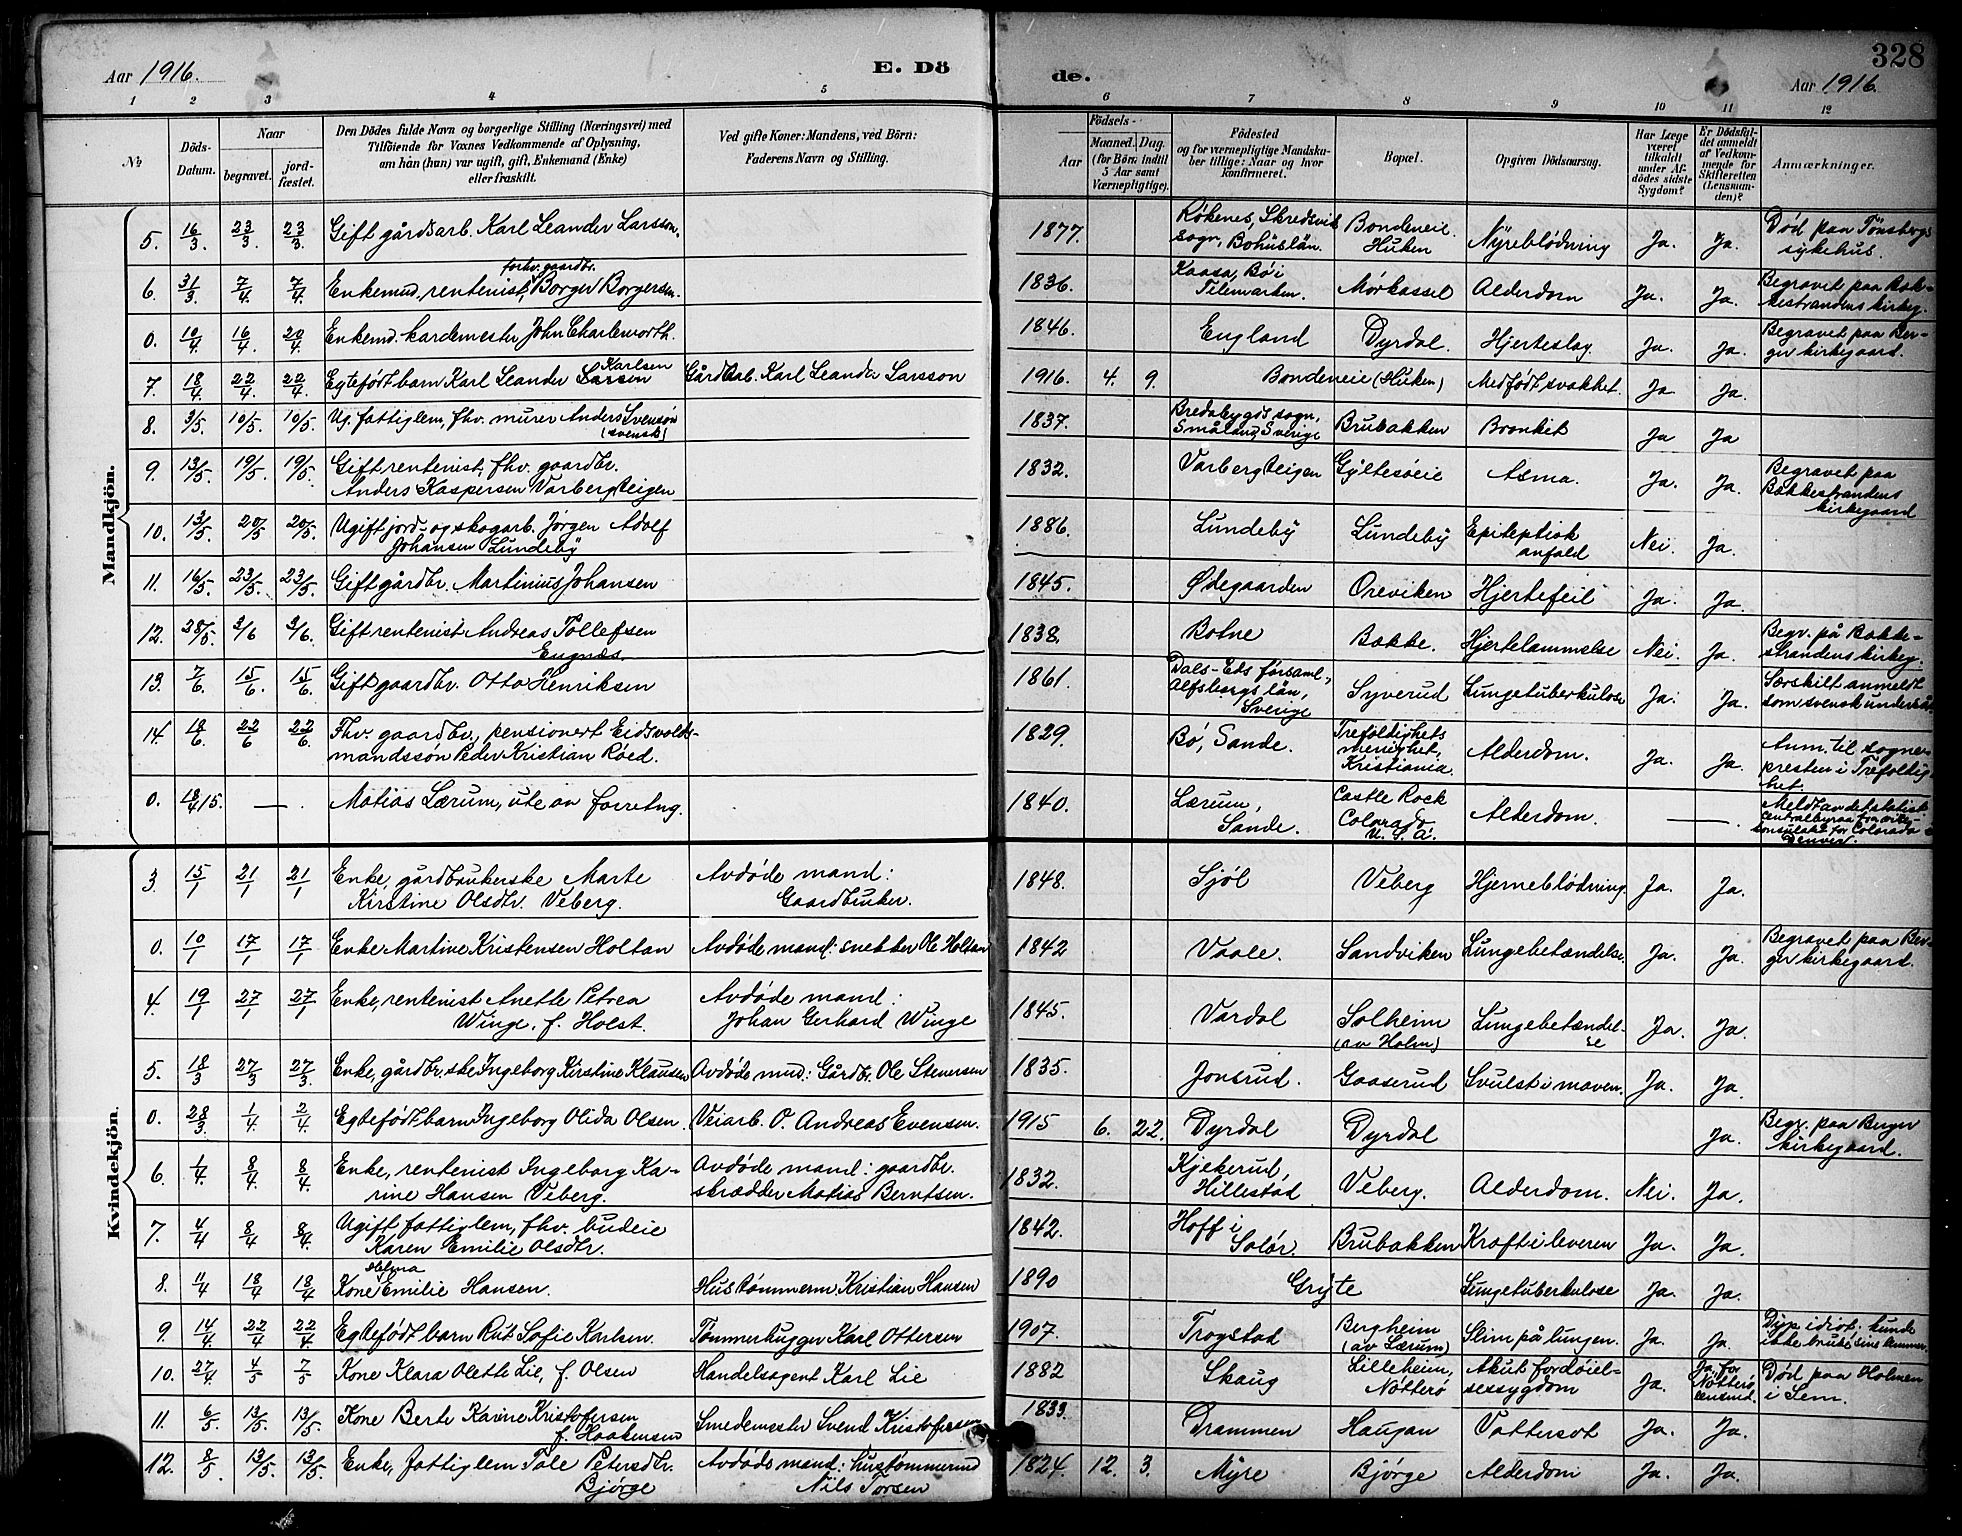 328
Aar 1916.
E. Dö
de.
Aar 1916.
1 2 3 4 5 6 7 8 9 10 11 12
No
Döds-
Datum.
Naar
begravet.
jord-
fæstet.
Den Dödes fulde Navn og borgerlige Stilling (Næringsvei) med
Tilföiende for Voxnes Vedkommende af Oplysning,
om hån (hun) var ugift, gift, Enkemand (Enke)
eller fraskilt.
Ved gifte Koner: Mandens, ved Börn:
Faderens Navn og Stilling.
Födsels-
Aar
Maaned. Dag.
(for Börn indtil
5 Aar samt
Værnepligtige).
Födested
og for værnepligtige Mandsku-
ber tillige: Naar og hvor
konfirmeret.
Bopæl.
Opgiven Dödsaarsag.
Har Læge
været
tilkaldt
under Af-
dödes sidste
Sygdom?
Er Dödsfal-
det anmeldt
af Vedkom-
mende for
Skifteretten
(Lensman-
den)?
Anmærkninger.
Mandkjön.
5. 16/3. 23/3. 23/3. Gift gårdsarb. Karl Leander Larsson. 1877. Rökenes, Skredsvik sogn, Bohuslän. Bondeneie Huken Nyreblödning Ja. Ja. Död paa Tönsbergs sykehus.
6. 31/3 7/4. 7/4. Enkemnd. rentenist, forhv. gaardbr. Borger Borgersen. 1836. Kaasa, Bö i Telemarken. Mörkassel Alderdom Ja. Ja. Begravet paa Bak-
kestrandens kirkeg.
0. 10/4. 16/4. 20/4. Enkemd. kardemester John Charleworth. 1846. England Dyrdal. Hjerteslag Ja. Ja. Begravet paa Ber-
ger kirkegaard.
7. 18/4. 22/4. 22/4. Egtefödt barn Karl Leander Larsen Karlsen Gårdsab. Karl Leander Larsson 1916. 4. 9. Bondeneie (Huken) Medfödt svakhet. Ja Ja.
8. 3/5. 10/5. 10/5. Ug. fattiglem, fhv. murer Anders Svensön (svensk) 1837. Bredabygds sogn, Småland, Sverige Brubakken Bronkit Ja Ja
9. 13/5 19/5 19/5. Gift rentenist, fhv. gaardbr.
Anders Kaspersen Varbergteigen 1832. Varbergteigen Gyltesöeie Asma. Ja. Ja. Begravet paa
Bakkestrandens
kirkegaard
10. 13/5. 20/5 20/5. Ugift jord- og skogarb. Jörgen Adolf
Johansen Lundeby 1886. Lundeby Lundeby Epileptisk
anfald Nei. Ja.
11. 16/5. 23/5. 23/5. Gift gårdbr. Martinius Johansen 1845. Ödegaarden Oreviken Hjertefeil Ja. Ja
12. 28/5. 3/6 3/6. Gift rentenist Andreas Tollefsen
Engnæs. 1838. Botne Bakke. Hjertelammelse Nei. Ja. Begr. på Bakke-
strandens kirkeg.
13. 7/6. 15/6. 15/6. Gift gaardbr. Otto Henriksen 1861. Dals-Eds församl.,
Alfsborgs län,
Sverige Syverud Lungetuberkulose Ja. Ja. Særskilt anmeldt
som svensk undersåt.
14. 18/6. 22/6 22/6. Fhv. gaardbr., pensionert Eidsvolds-
mandssön Peder Kristian Röed. 1829. Bö, Sande. Trefoldighets
menighet,
Kristiania. Alderdom. Ja. Ja. Anm. til sogne-
presten i Trefoldig-
het.
0. 18/4 15. — Matias Lærum, ute av forretng. 1840. Lærum,
Sande. Castle Rock
Colorado
U. S. A. Alderdom. — Meldt av det statistisk
centralbyraa fra
konsulat for Colorado i
Denver.
Kvindekjön.
3. 15/1 21/1 21/1 Enke, gårdbrukerske Marte
Kirstine Olsdtr. Veberg. Avdöde mand:
Gaardbruker. 1848. Sjöl Veberg Hjerneblödning Ja. Ja.
0. 10/1 17/1 17/1 Enke Martine Kristensen Holtan Avdöde mand: snekker Ole Holtan 1842 Vaale. Sandviken Lungebetændelse. Ja. Ja. Begravet paa Ber-
ger kirkegaard.
4. 19/1 27/1 27/1 Enke, rentenist Anette Petrea
Winge, f. Holst. Avdöde mand:
Johan Gerhard Winge 1845. Vardal Solheim
(av Holm) Lungebetændel-
se Ja. Ja.
5. 18/3 27/3 27/3. Enke, gårdbr.ske Ingeborg Kirstine Klausen Avdöde mnd.: Gårdbr. Ole Stenersen 1835. Jonsrud. Gaaserud Svulst i maven. Ja. Ja.
0. 28/3. 1/4 2/4. Egtefödt barn Ingeborg Olida Olsen. Veiarb. O. Andreas Evensen. 1915 6. 22. Dyrdal Dyrdal Ja. Begr. paa Berger
kirkegaard.
6. 1/4 8/4 8/4. Enke, rentenist Ingeborg Ka-
rine Hansen Veberg. Avdöde mand: gaardbr.
skrædder Matias Berntsen. 1832. Kjekerud,
Hillestad Veberg. Alderdom. Nei. Ja.
7. 4/4 8/4 8/4. Ugift fattiglem, fhv. budeie
Karen Emilie Olsdtr. 1842. Hoff i
Solör. Brubakken Kræft i leveren Ja. Ja.
8. 11/4 18/4 18/4 Kone Helma Emilie Hansen. Hustömmerm Kristian Hansen 1890 Gryte Lungetuberkulose Ja. Ja.
9. 14/4 22/4 22/4. Egtefödt barn Rut Sofie Karlsen. Tömmerhugger Karl Ottersen 1907. Trogstad Bergheim
(av Lærum) Slim på lungen. Ja. Ja. Dyp idiot. kunde
ikke bruke sine lemmer.
10. 27/4. 4/5 7/5 Kone Klara Olette Lie, f. Olsen Handelsagent Karl Lie 1882 Skaug Lilleheim,
Nötterö Akut fordöiel-
sessygdom Ja. Ja for
Nötterö
lensmd. Död paa Holmen
i Sem.
11. 6/5 13/5. 13/5. Kone Berte Karine Kristofersen
f. Haakensen Smedemester Svend Kristofersen 1833. Drammen Haugan Vattersot Ja. Ja.
12. 8/5 13/5. 13/5. Enke, fattiglem Tale Petersdtr.
Björge Avdöde mand: hustömmermd
Nils Torsen 1824. 12. 3. Myre Björge Alderdom Ja. Ja.